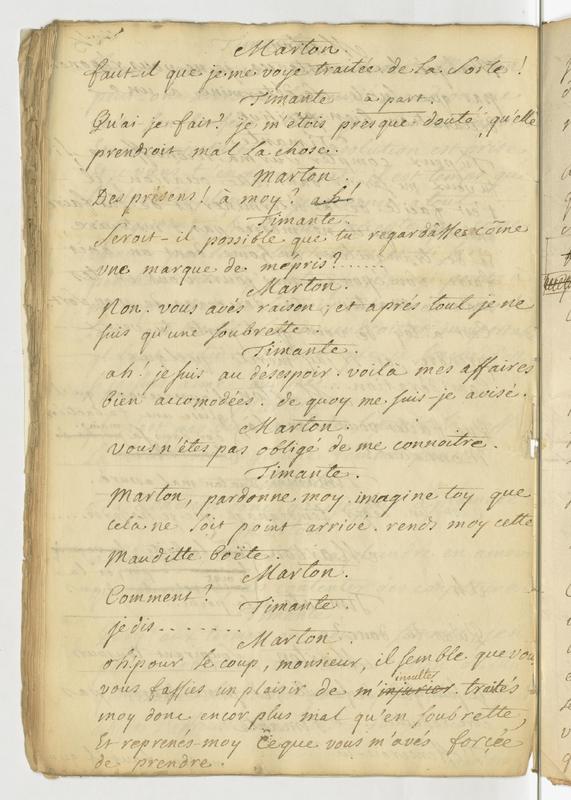 Marton.
faut-il que je me voye traitée de la Sorte !
Timante a part.
Qu'ai je fait ? je m'étois presque douté, qu'elle
prendroit mal la chose.
Marton.
Des présens ! à moy ? ah !
Timante.
Seroit-il possible que tu regardâsses cõme
vne marque de mépris ? ......
Marton.
Non. vous avés raison ; et aprés tout je ne
suis qu'une soubrette.
Timante.
ah ! je suis au désespoir. voilà mes affaires
bien accomodées. de quoy me suis-je avisé.
Marton.
vous n'êtes pas obligé de me connoitre.
Timante.
Marton, pardonne moy. imagine toy que
cela ne soit point arrivé. rends moy cette
Mauditte boëte.
Marton.
Comment ?
Timante.
je dis ........
Marton.
oh ! pour le coup, monsieur, il semble que vou
insulter
vous fassies un plaisir de m'injurier. traités
moy donc encor plus mal qu'en soubrette,
Et reprenés-moy ce que vous m'avés forçée
de prendre.